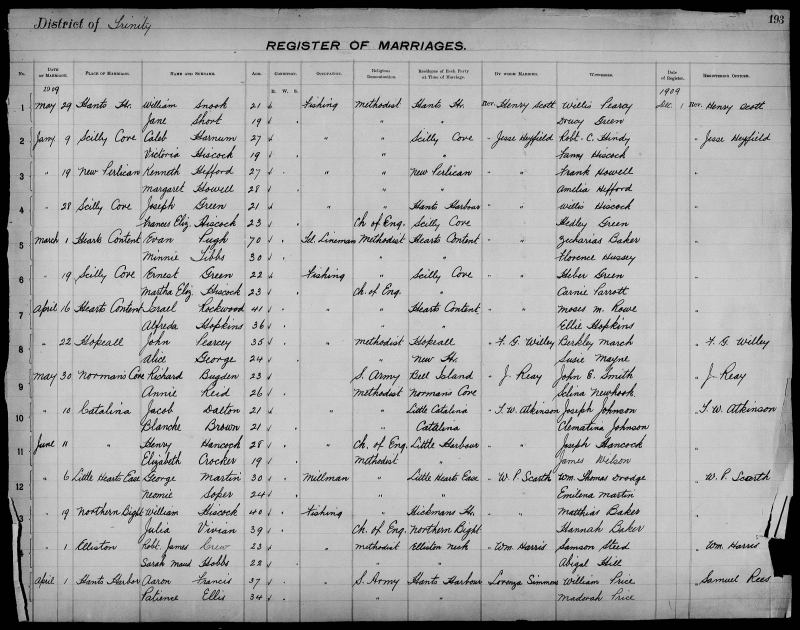 District of Trinity 193
REGISTER OF MARRIAGES.
No. DATE OF MARRIAGE. PLACE OF MARRIAGE. NAME AND SURNAME. AGE. CONDITION. OCCUPATION. Religious Denomination. Residence of Each Party at Time of Marriage. BY WHOM MARRIED. WITNESSES. Date of Register. REGISTERING OFFICER.
1909 B. W. S. 1909
1 May 29 Hants Hr. William Snook 21 Fishing Methodist Hants Hr. Rev. Henry Scott Willis Pearcy Dec 1 Rev. Henry Scott
Jane Short 19 " " Drucy Green
2 Jany 9 Scilly Cove Caleb Harnum 27 " " Scilly Cove " Jesse Heyfield Robt. C. Hindy " Jesse Heyfield
Victoria Hiscock 19 " " Fanny Hiscock
3 " 19 New Perlican Kenneth Hefford 27 " " New Perlican " " Frank Howell "
Margaret Howell 28 " " Amelia Hefford
4 " 28 Scilly Cove Joseph Green 21 " " Hants Harbour " " Willis Hiscock "
Frances Eliz. Hiscock 23 Ch of Eng. Scilly Cove Hedley Green
5 March 1 Hearts Content Evan Pugh 70 Tel. Lineman Methodist Hearts Content " " Zecharias Baker "
Minnie Tibbs 30 " " Florence Hussey
6 " 19 Scilly Cove Ernest Green 22 Fishing " Scilly Cove " " Heber Green "
Martha Eliz. Hiscock 23 Ch. of Eng. " Carnie Parrott
7 April 16 Hearts Content Israel Rockwood 41 " " Hearts Content " " Moses M. Rowe "
Alfreda Hopkins 36 " " Ellie Hopkins
8 " 22 Hopeall John Pearcey 35 " Methodist Hopeall " F. G. Willey Berkley March " F. G. Willey
Alice George 24 " New Hr. Susie Mayne
9 May 30 Normans Cove Richard Bugden 23 " S. Army Bell Island " J. Reay John E. Smith " J. Reay
Annie Reid 26 Methodist Normans Cove Selina Newhook
10 " 10 Catalina Jacob Dalton 21 " " Little Catalina " T. W. Atkinson Joseph Johnson " T. W. Atkinson
Blanche Brown 21 " Catalina Clematina Johnson
11 June 11 " Henry Hancock 28 " Ch. of Eng. Little Harbour " " Joseph Hancock "
Elizabeth Crocker 19 Methodist " James Wilson
12 " 6 Little Hearts Ease George Martin 30 Millman " Little Hearts Ease " W. P. Scarth Wm. Thomas Drodge " W. P. Scarth
Neomie Soper 24 " " Emilena Martin
3 " 19 Northern Bight William Hiscock 40 Fishing " Hickmans Hr. " " Matthias Baker "
Julia Vivian 39 Ch. of Eng. Northern Bight Hannah Baker
4 " 1 Elliston Robt. James Crew 23 " Methodist Elliston Neck " Wm. Harris Samson Steed " Wm. Harris
Sarah Maud Hobbs 22 " " Abigal Hill
April 1 Hants Harbor Aaron Francis 37 " S. Army Hants Harbour Lorenza Simmons William Price " Samuel Rees
Patience Ellis 34 " " Price